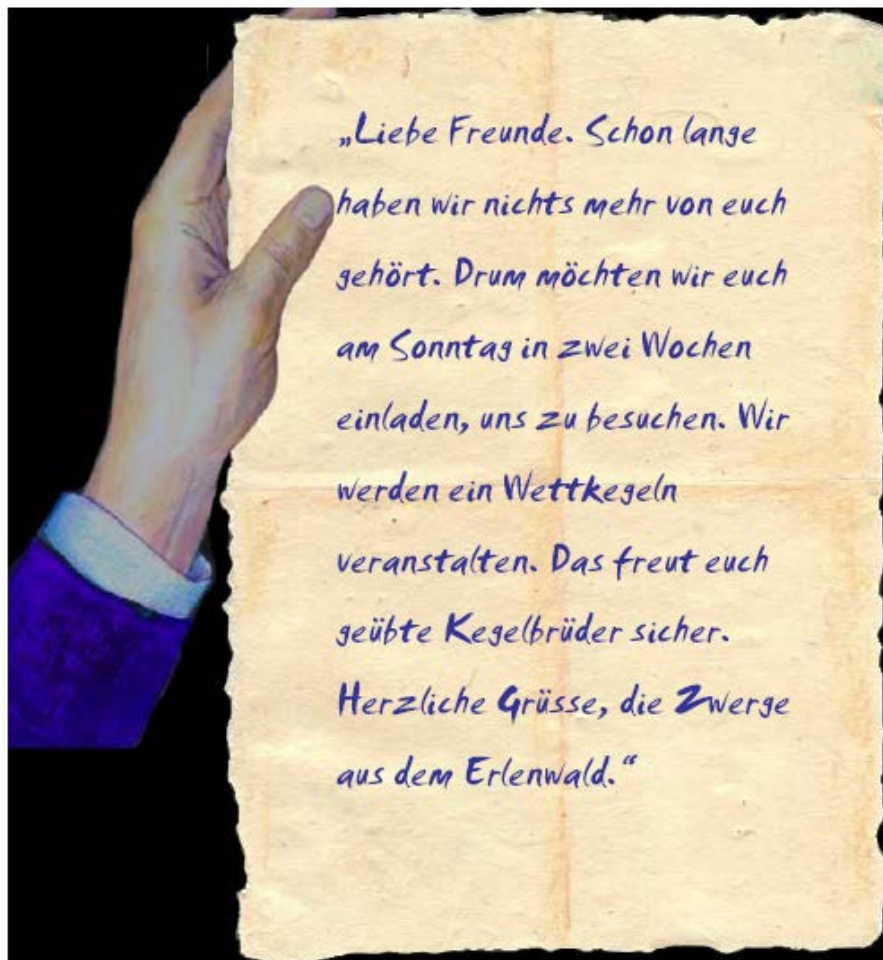 „Liebe Freunde. Schon lange
haben wir nichts mehr von euch
gehört. Drum möchten wir euch
am Sonntag in zwei Wochen
einladen, uns zu besuchen. Wir
werden ein Wettkegeln
veranstalten. Das freut euch
geübte Kegelbrüder sicher.
Herzliche Grüsse, die Zwerge
aus dem Erlenwald.“